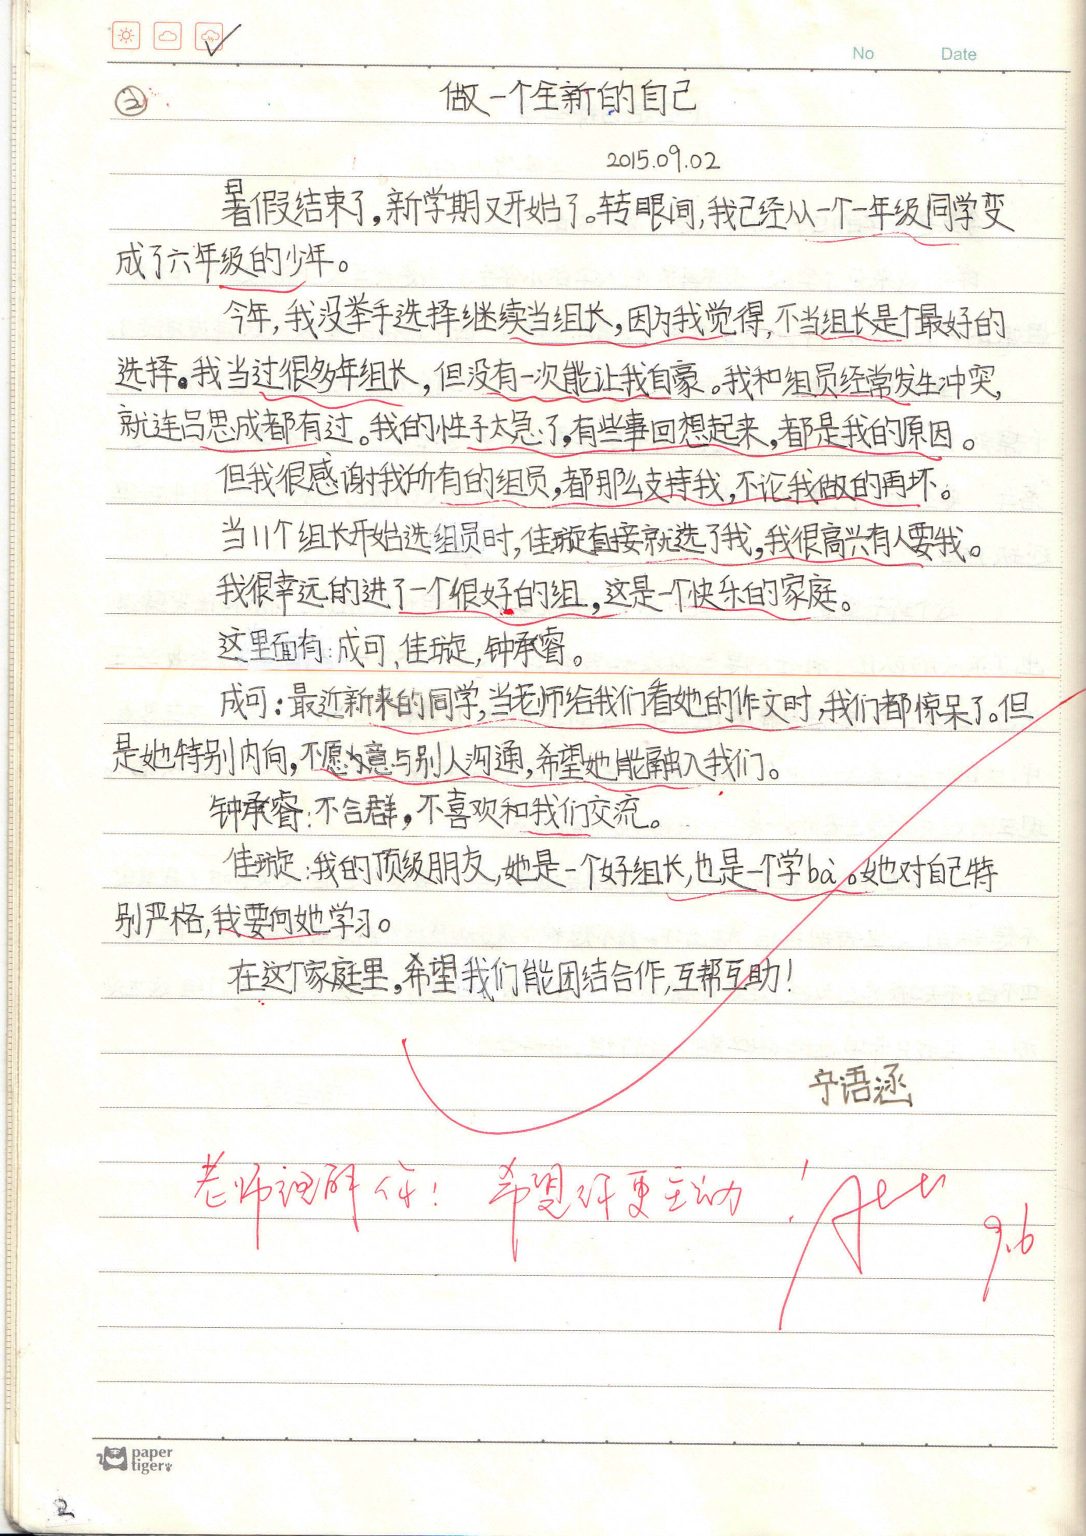 No Date
② 做一个全新的自己
2015.09.02
暑假结束了,新学期又开始了。转眼间,我已经从一个一年级同学变
成了六年级的少年。
今年,我没举手选择继续当组长,因为我觉得,不当组长是个最好的
选择。我当过很多年组长,但没有一次能让我自豪。我和组员经常发生冲突,
就连吕思成都有过。我的性子太急了,有些事回想起来,都是我的原因。
但我很感谢我所有的组员,都那么支持我,不论我做的再坏。
当11个组长开始选组员时,佳璇直接就选了我,我很高兴有人要我。
我很幸远的进了一个很好的组,这是一个快乐的家庭。
这里面有:成可、佳璇,钟承睿。
成可:最近新来的同学,当老师给我们看她的作文时,我们都惊呆了。但
是她特别内向,不愿意与别人沟通,希望她能融入我们。
钟承睿:不合群,不喜欢和我们交流。
佳璇:我的顶级朋友,她是一个好组长,也是一个学bà。她对自己特
别严格,我要向她学习。
在这个家庭里,希望我们能团结合作,互帮互助!
宁语涵
老师理解你! 希望你更主动!
A++
9.6
paper
tiger
2